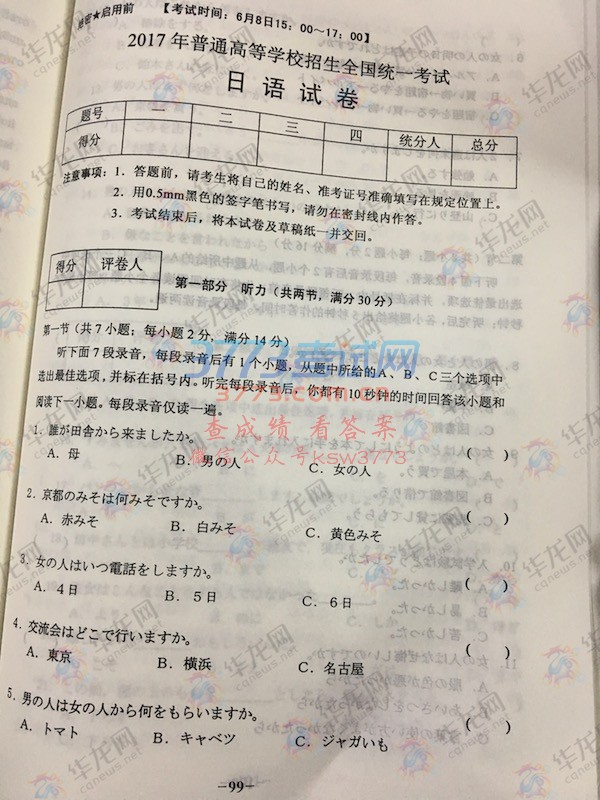 绝密★启用前
【考试时间：6月8日15：00～17：00】
2017年普通高等学校招生全国统一考试
日语试卷
题号 一 二 三 四 统分人 总分
得分
注意事项：1．答题前，请考生将自己的姓名、准考证号准确填写在规定位置上。
2．用0.5mm黑色的签字笔书写，请勿在密封线内作答。
3．考试结束后，将本试卷及草稿纸一并交回。
得分 评卷人
第一部分 听力（共两节，满分30分）
第一节（共7小题；每小题2分，满分14分）
听下面7段录音，每段录音后有1个小题，从题中所给的A、B、C三个选项中
选出最佳选项，并标在括号内。听完每段录音后，你都有10秒钟的时间回答该小题和
阅读下一小题。每段录音仅读一遍。
1．誰が田舎から来ましたか。 （ ）
A．母 B．男の人 C．女の人
2．京都のみそは何みそですか。 （ ）
A．赤みそ B．白みそ C．黄色みそ
3．女の人はいつ電話をしますか。 （ ）
A．4日 B．5日 C．6日
4．交流会はどこで行いますか。 （ ）
A．東京 B．横浜 C．名古屋
5．男の人は女の人から何をもらいますか。 （ ）
A．トマト B．キャベツ C．ジャガいも
－99－
3773考试网
3773.com.cn
查成绩 看答案
微信公众号 ksw3773
华龙网
cqnews.net